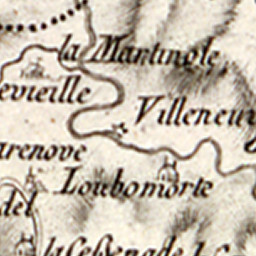 la Martinole
evieille
Villeneuv
arenove
Loubomorte
del
la Cessenade